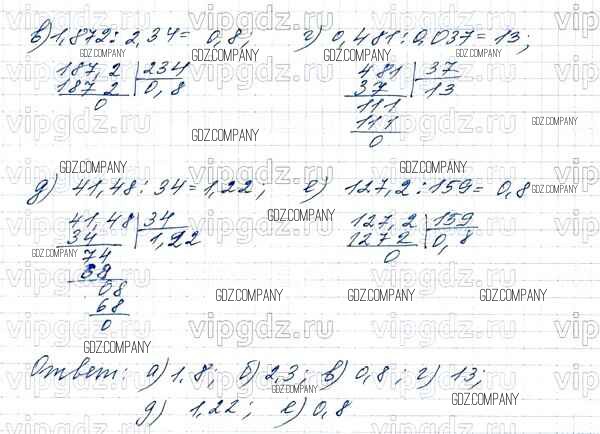 в) 1,872 : 2,34 = 0,8; г) 0,481 : 0,037 = 13;
187,2 | 234 481 | 37
187 2 | 0,8 37 | 13
0 111
111
0
д) 41,48 : 34 = 1,22; е) 127,2 : 159 = 0,8
41,48 | 34 127,2 | 159
34 | 1,22 127 2 | 0,8
74 0
68
08
68
0
Ответ: а) 1.8; б) 2,3; в) 0,8; г) 13;
д) 1,22; е) 0,8
GDZ.COMPANY
vipgdz.ru